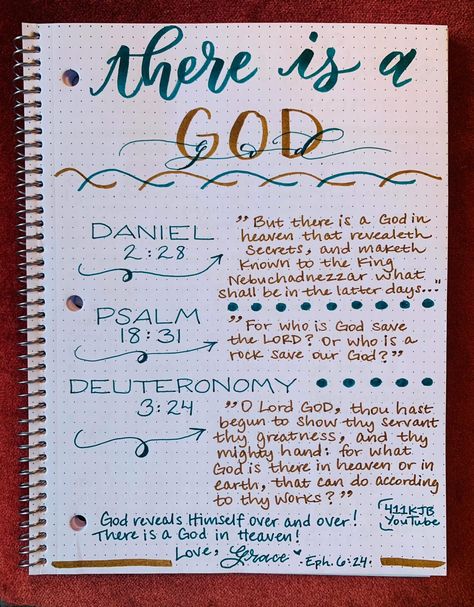 there is a
GOD
God
DANIEL
2:28
"But there is a God in
heaven that revealeth
Secrets, and maketh
known to the King
Nebuchadnezzar what
shall be in the latter days..."
PSALM
18:31
"For who is God save
the LORD? Or who is a
rock save our God?"
DEUTERONOMY
3:24
"O Lord GOD, thou hast
begun to show thy servant
thy greatness, and thy
mighty hand: for what
God is there in heaven or in
earth, that can do according
to thy works?"
God reveals Himself over and over!
There is a God in Heaven!
Love, Grace
·Eph. 6:24·
411KJB
YouTube